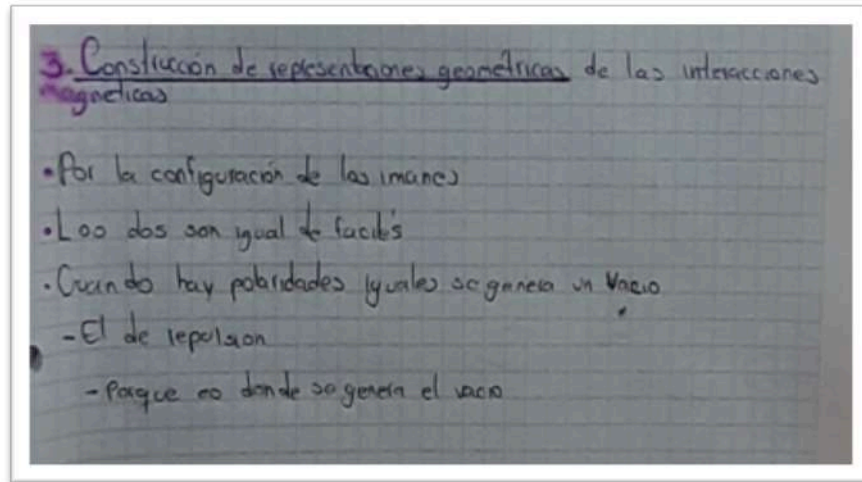 3. Construcción de representaciones geométricas de las interacciones
magneticas
• Por la configuración de los imanes
• Los dos son igual de faciles
• Cuando hay polaridades iguales se genera un vacio
- El de repulsion
- Porque es donde se genera el vacio